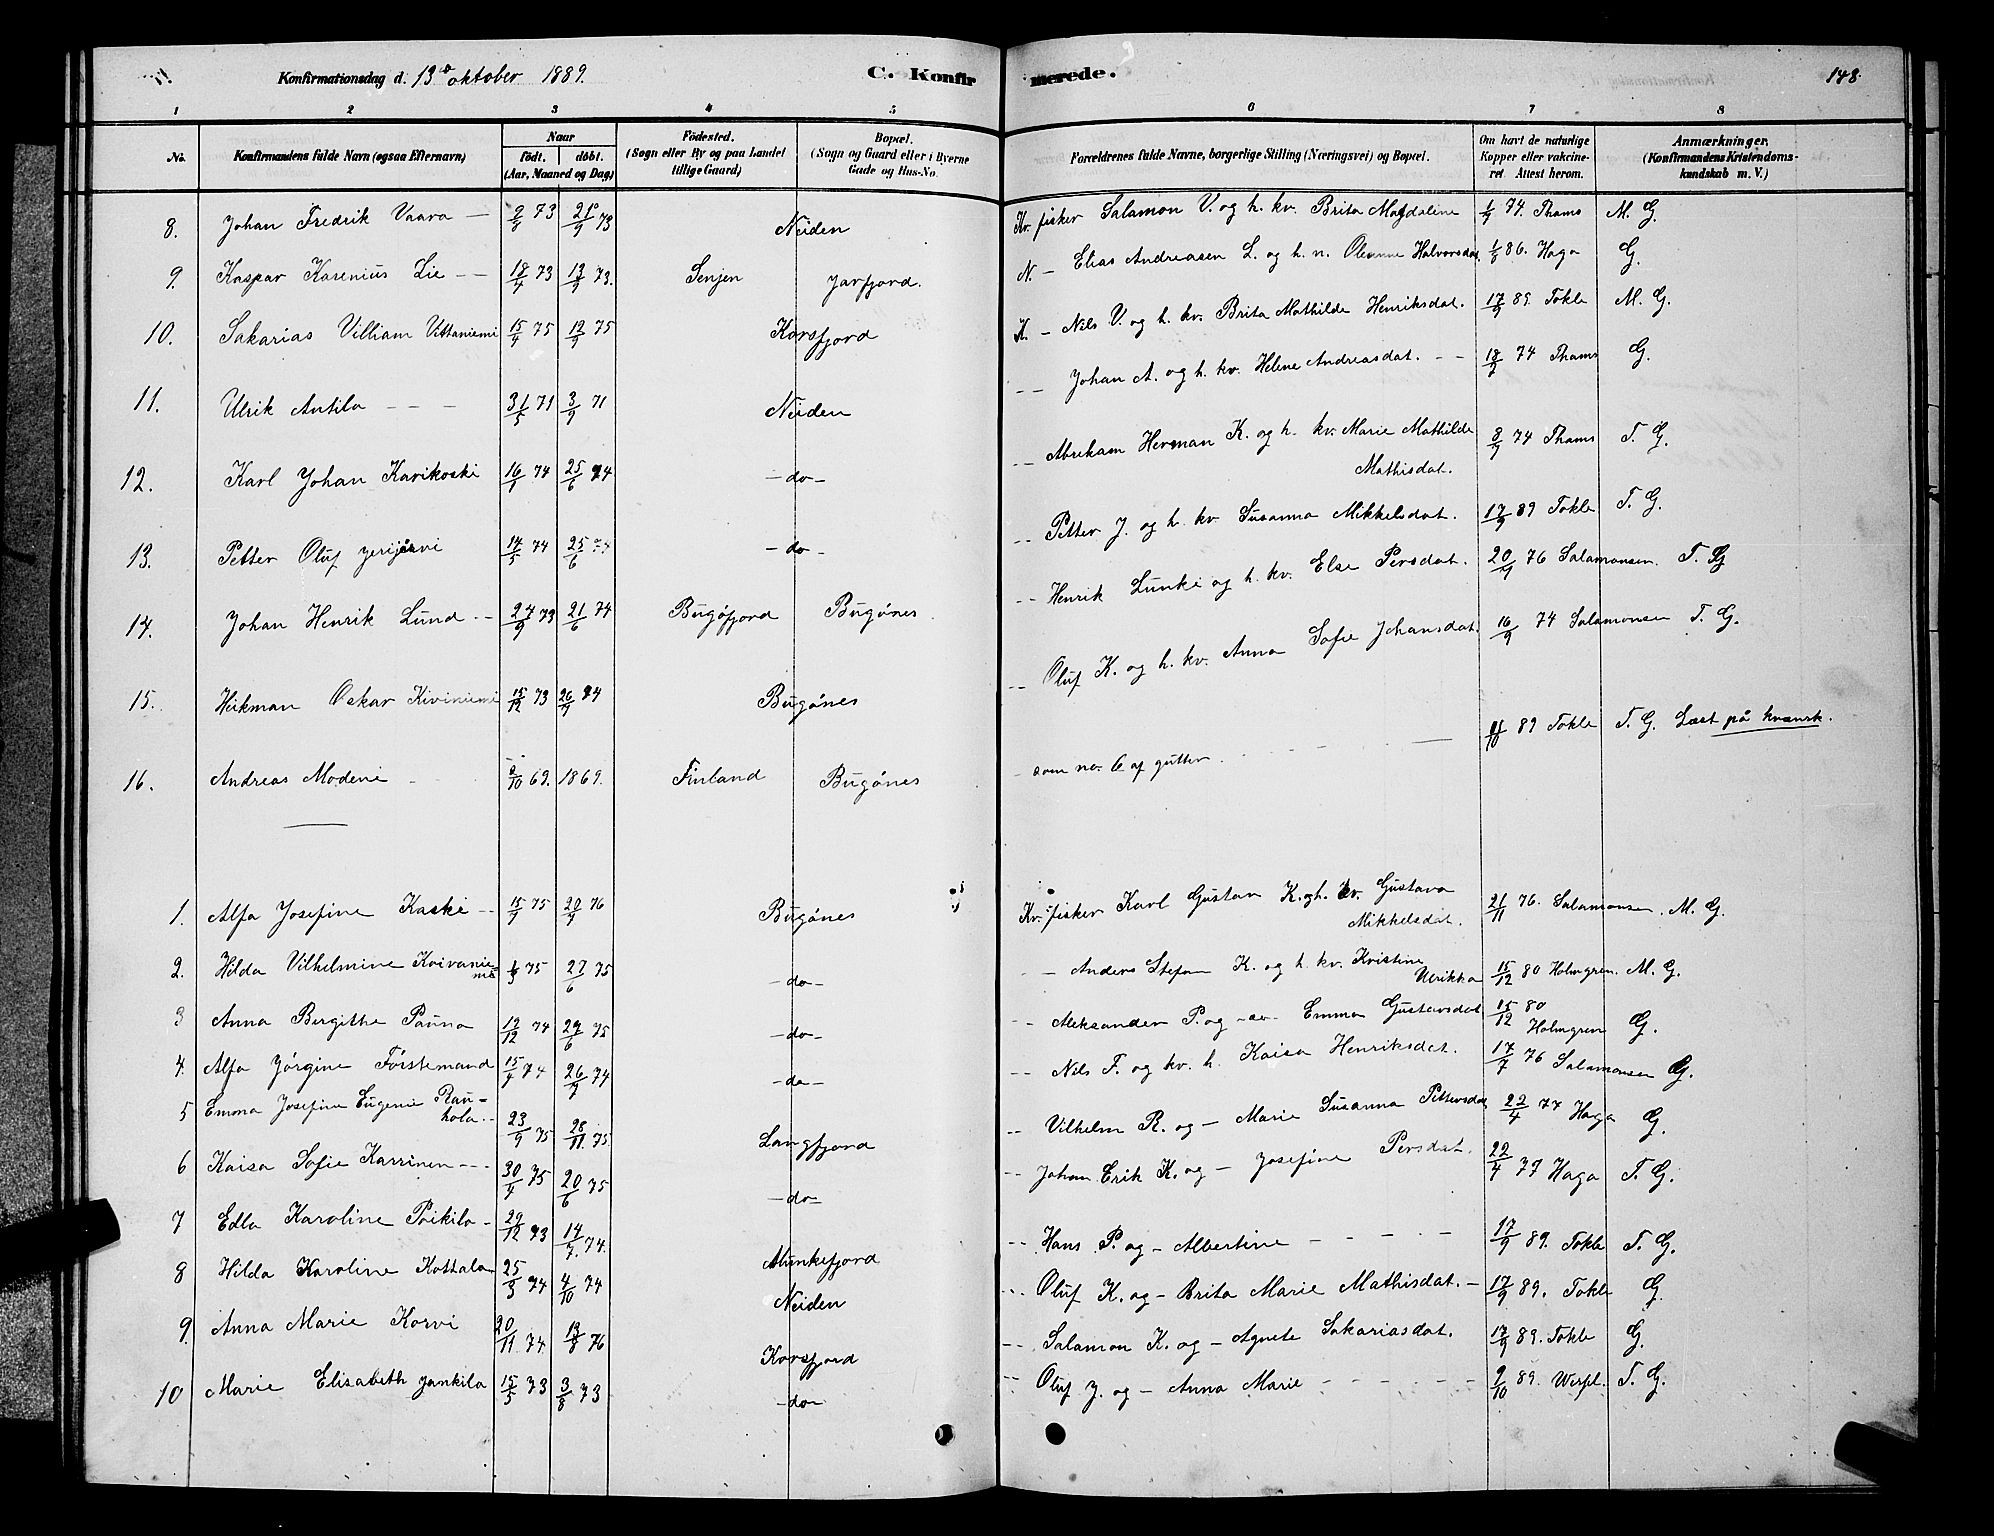 Konfirmationsdag d. 13de oktober 1889.
C. Konfirmerede.
148
1 2 3 4 5 6 7 8
No. Konfirmandens fulde Navn (ogsaa Efternavn)
Naar födt. döbt. (Aar, Maaned og Dag)
Födested. (Sogn eller By og paa Landet tillige Gaard)
Bopæl. (Sogn og Gaard eller i Byerne Gade og Hus-No.
Forældrenes fulde Navne, borgerlige Stilling (Næringsvei) og Bopæl.
Om havt de naturlige Kopper eller vakcineret. Attest herom.
Anmærkninger. (Konfirmandens Kristendomskundskab m. V.)
8. Johan Fredrik Vaara — 73 21/9 73 Neiden Kv. fisker Salamon V. og h. kv. Brita Magdaline 1/9 74. Thams M. G.
9. Kaspar Karenius Lie — — 18/4 73 13/9 73. Senjen Jarfjord. N. — Elias Andreasen L. og h. n. Oleanne Halvorsdat. 86. Haga G.
10. Sakarias Villiam Vittaniemi 15/4 75 12/9 75 Korsfjord K. — Nils V. og h. kv. Brita Mathilde Henriksdat. 17/9 89. Tokle M. G.
11. Ulrik Antila — — — 31/5 71 3/9 71 Neiden — — Johan A. og h. kv. Helene Andreasdat. — — 18/7 74 Thams G.
12. Karl Johan Karikoski 16/1 74 25/6 74 — do — — — Abraham Herman K. og h. kv. Marie Mathilde Mathisdat. 8/7 74 Thams T. G.
13. Petter Oluf Jerijärvi 14/5 74 25/6 74 — do — — — Petter J. og h. kv Susanna Mikkelsdat. 17/9 89 Tokle T. G.
14. Johan Henrik Lund — 27/9 73 21/6 74 Bugöfjord Bugönes. — — Henrik Lunki og h. kv. Else Persdat. 20/9 76 Salamonsen. T. G
15. Heikman Oskar Kiviniemi 15/12 73 26/7 74 Bugönes — — Oluf K. og h. kv. Anna Sofie Johansdat. 16/9 74 Salamonsen T. G.
16. Andreas Modeni — /10 69. 1869. Finland Bugönes — som no. 6 af gutter. — — — /10 89 Tokle T. G. Læst på kvænsk.
1. Alfa Josefine Kaski — 15/7 75 20/7 76 Bugönes Kv. fisker Karl Gustav K. og h. kv. Gustava Mikkelsdat. 21/11 76. Salamonsen. M. G.
2. Hilda Vilhelmine Koivaniemi /3 75 27/6 75 — do — — Anders Stefan K. og h. kv. Kristine Ulrikka 15/12 80 Holmgren. M. G.
3 Anna Bergithe Pauna 12/12 74 27/6 75 — do — — — Aleksander P. og — do — Emma Gustavsdat 15/12 80 Holmgren G.
4. Alfa Jörgine Förstemand 15/4 74 26/7 74 — do — — — Nils F. og kv. h. Kaisa Henriksdat. 17/7 76 Salamonsen G.
5 Emma Josefine Eugenie Rauhola.. 23/9 75 28/11 75 Langfjord — — Vilhelm R. og — Marie Susanna Pettersdat 22/4 77 Haga G.
6 Kaisa Sofie Karrinen — — — 30/4 75 20/6 75 — do — — — Johan Erik K. og — Josefine Persdat. 22/4 77 Haga T. G.
7 Edla Karoline Poikila — 29/12 73 14/7. 74. Munkefjord — — Hans P. og — Albertine — — — — 17/9 89. Tokle T. G.
8 Hilda Karoline Kottala 25/3 74 4/10 74 Neiden — — Oluf K. og — Brita Marie Mathisdat. — 17/9 89. Tokle G.
9. Anna Marie Korvi 20/11 74 13/8 76 Korsfjord — — Salamon K. og — Agnete Sakariasdat. 17/9 89. Tokle G.
10 Marie Elisabeth Jankila 15/5 73 3/8 73 — do — — — Oluf J. og — Anna Marie — — — — 9/10 89. Werpl. T. G.